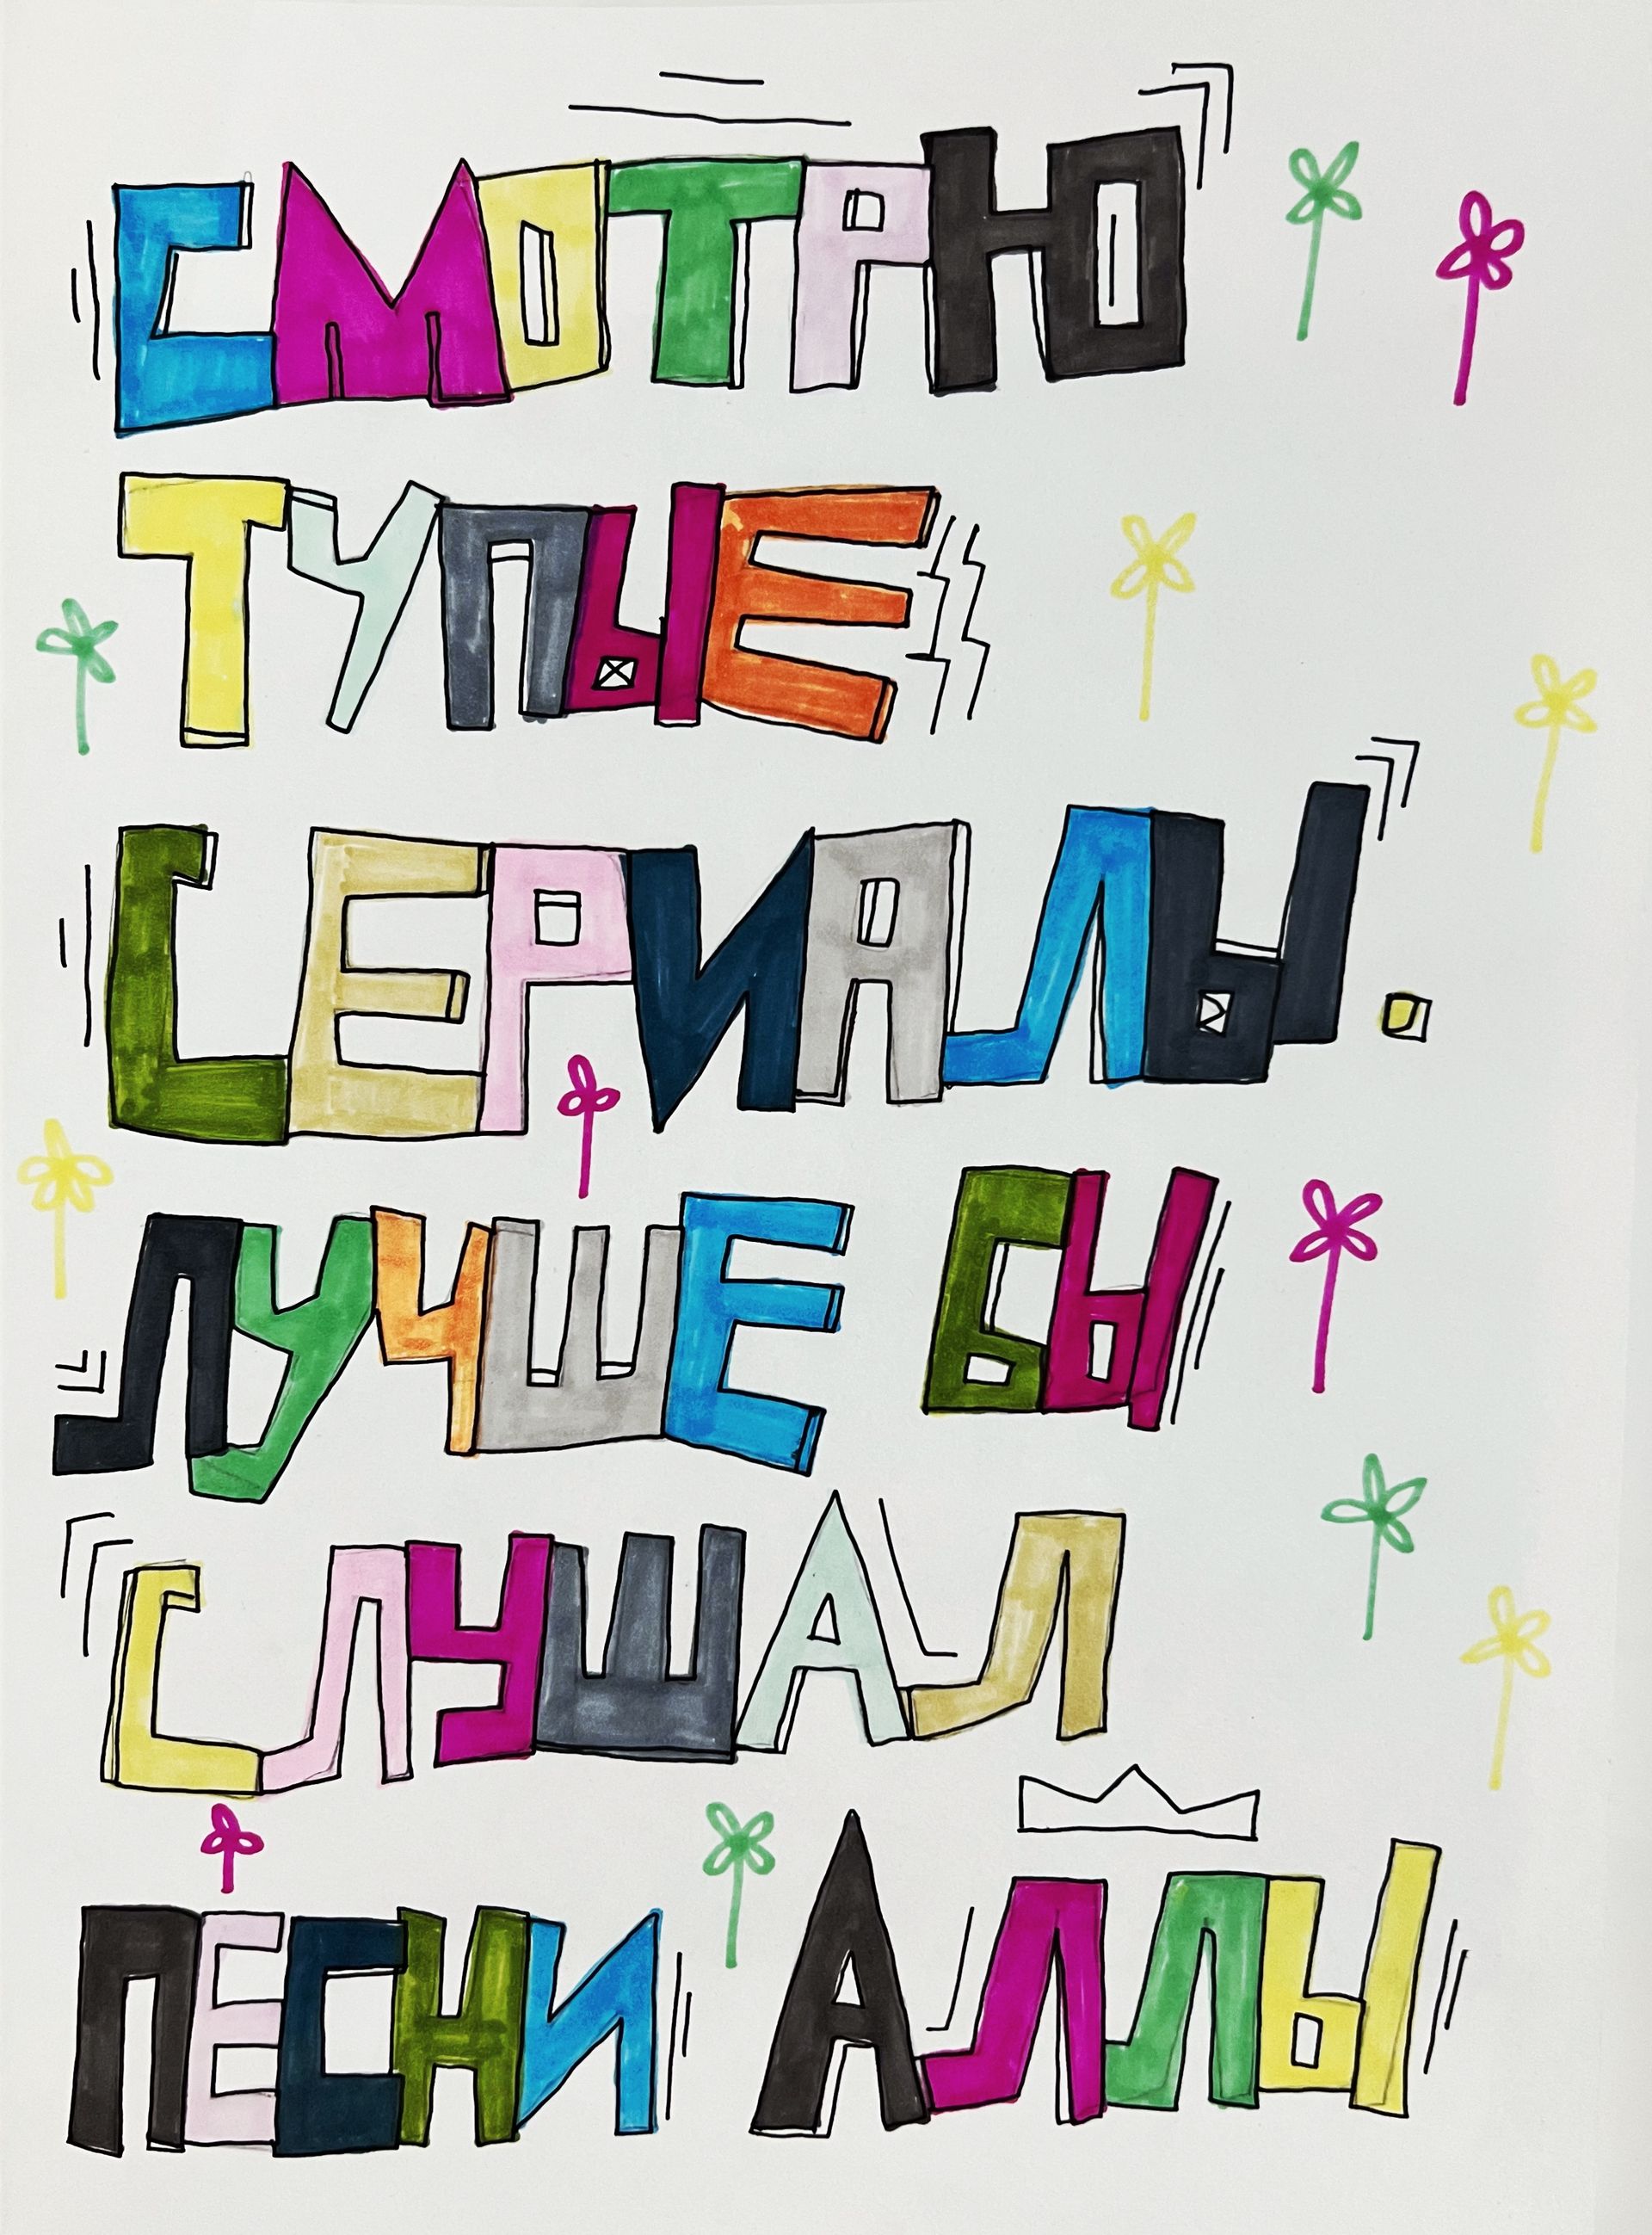 СМОТРЮ
ТУПЫЕ
СЕРИАЛЫ.
ЛУЧШЕ БЫ
СЛУШАЛ
ПЕСНИ АЛЛЫ